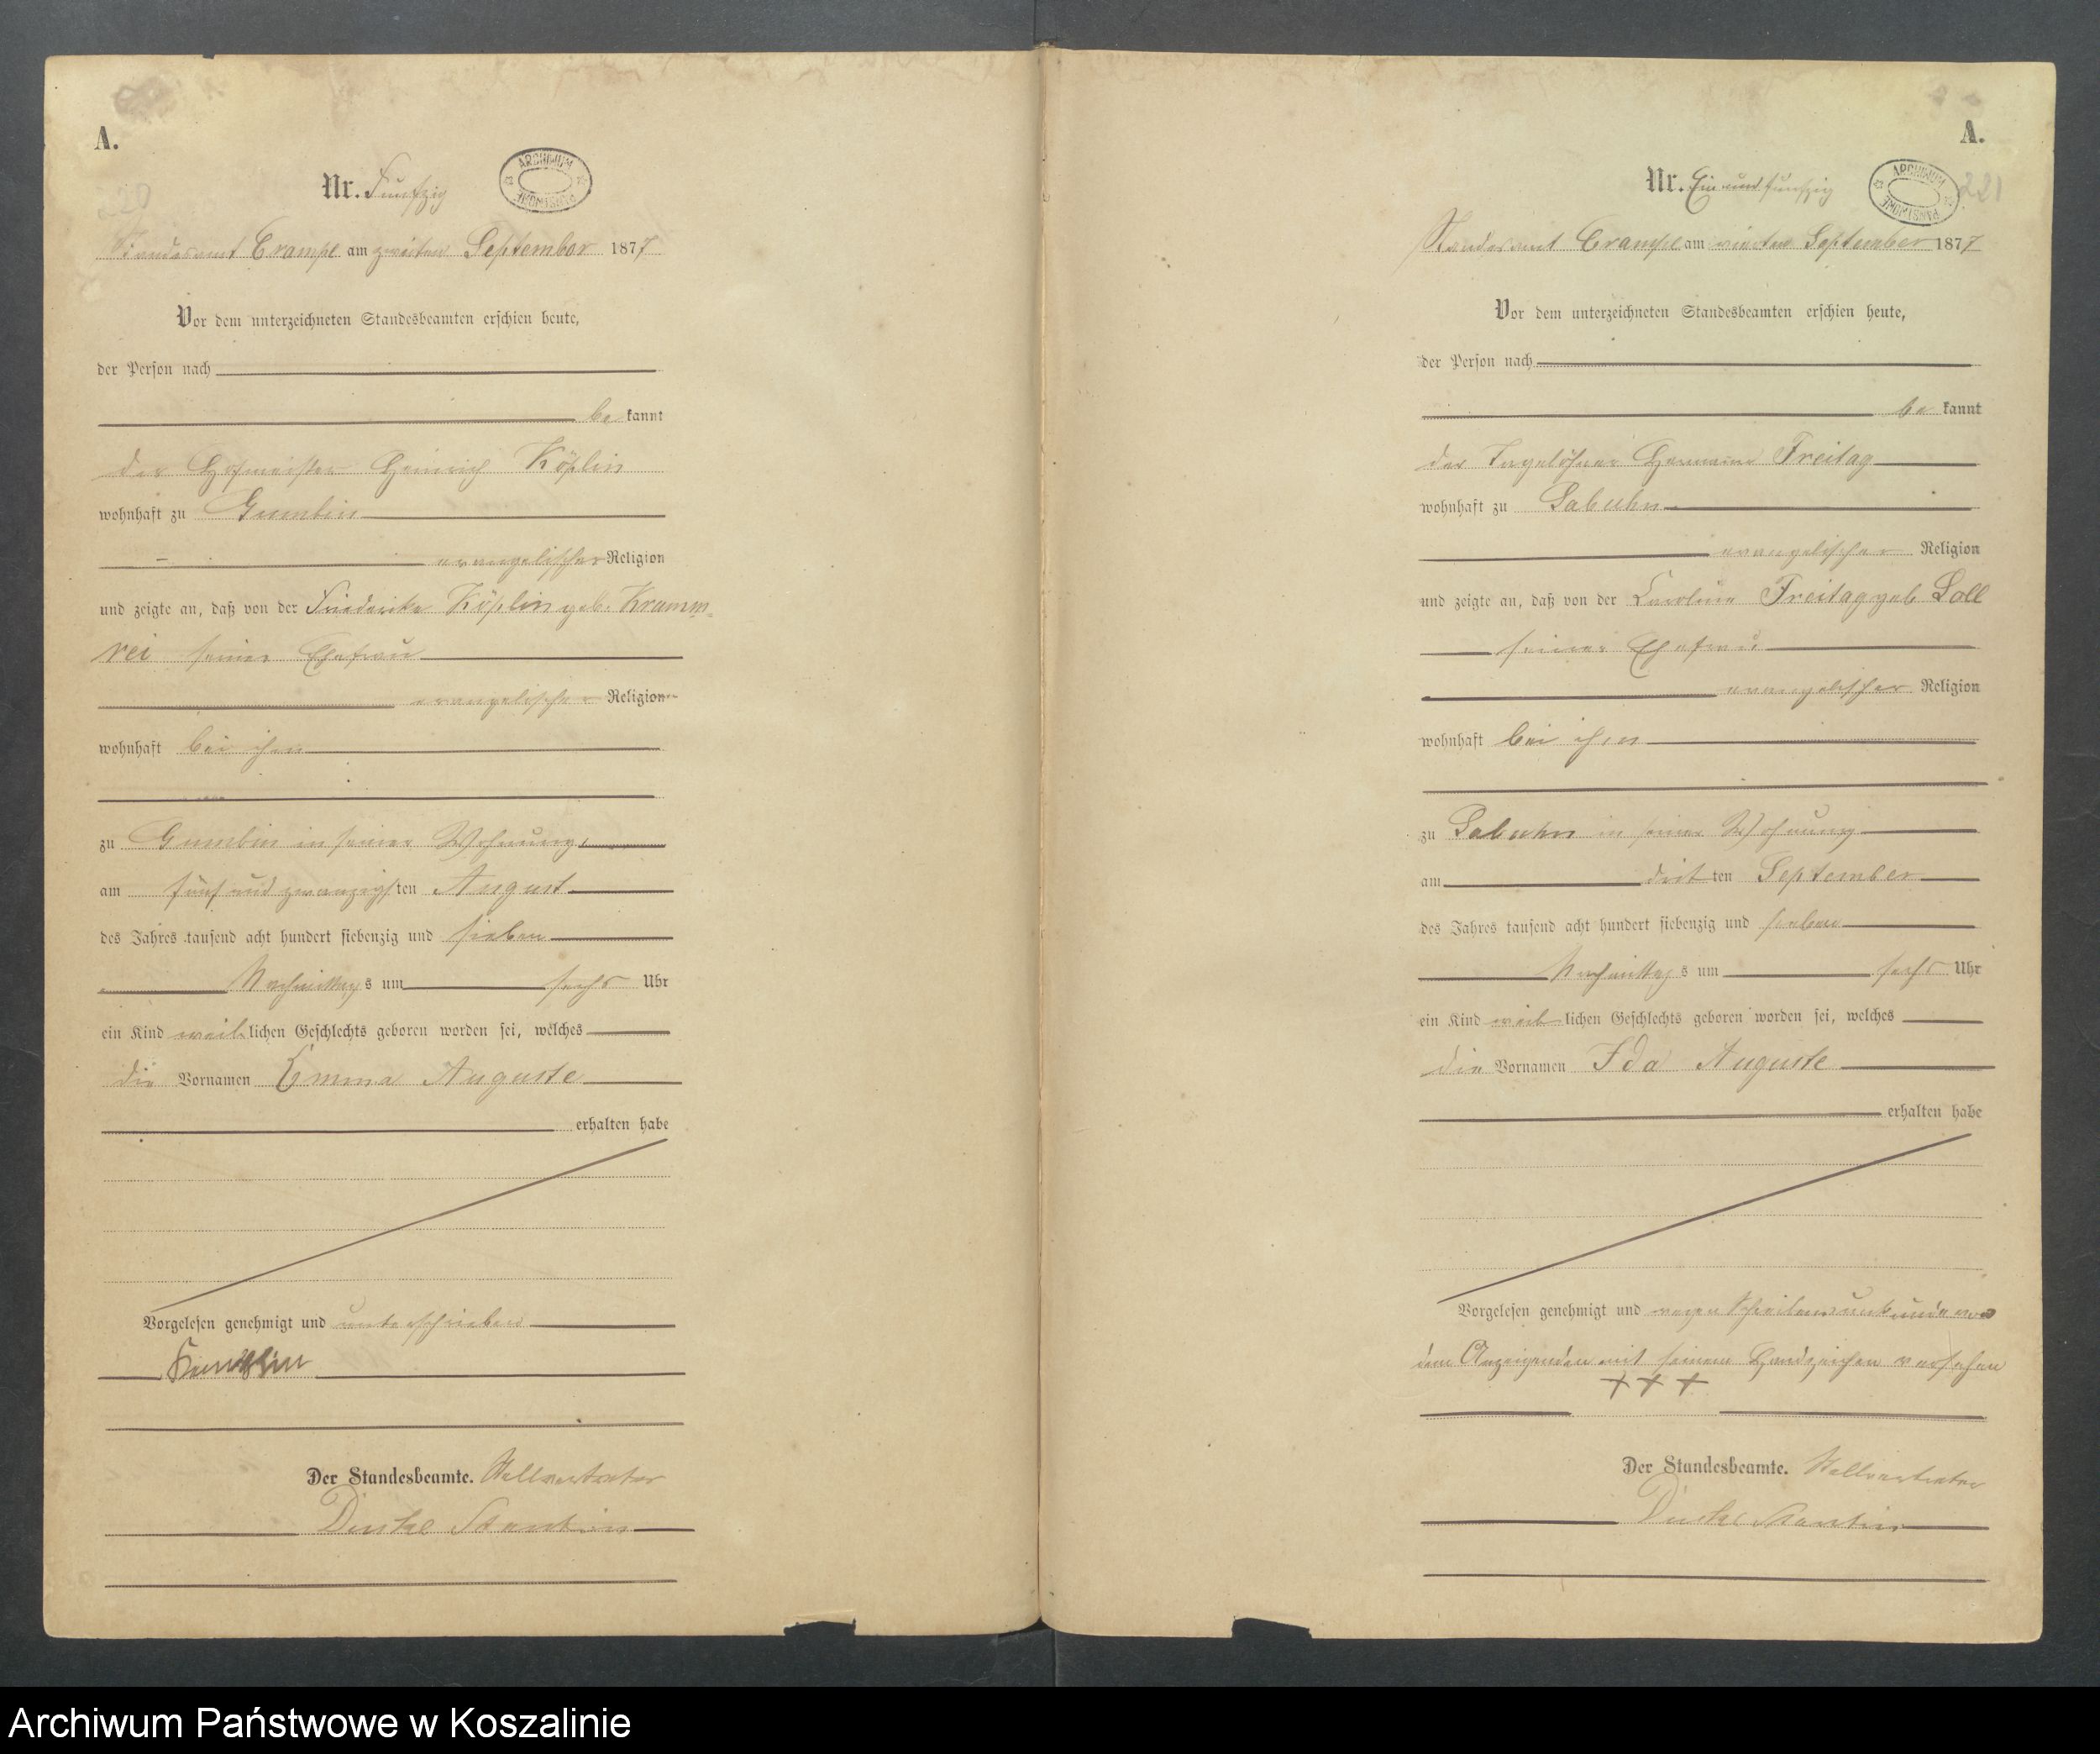 A.
Nr. Fünfzig
ARCHIWUM PAŃSTWOWE
Standesamt Crampe am zweiten September 1877
Vor dem unterzeichneten Standesbeamten erschien heute,
der Person nach
be kannt
der Hofmeister Heinrich Köplin
wohnhaft zu Gumbin
evangelischer Religion
und zeigte an, daß von der Friederike Köplin geb. Kramm-
rei seiner Ehefrau
evangelischer Religion
wohnhaft bei ihm
zu Gumbin in seiner Wohnung
am fünf und zwanzigsten August
des Jahres tausend acht hundert siebenzig und sieben
Nachmittags um sechs Uhr
ein Kind weiblichen Geschlechts geboren worden sei, welches
die Vornamen Emma Auguste
erhalten habe
Vorgelesen genehmigt und unterschrieben
Der Standesbeamte. Stellvertreter
A.
Nr. Ein und fünfzig
ARCHIWUM PAŃSTWOWE
221
Standesamt Crampe am vierten September 1877
Vor dem unterzeichneten Standesbeamten erschien heute,
der Person nach
be kannt
der Tagelöhner Hermann Freitag
wohnhaft zu Labuhn
evangelischer Religion
und zeigte an, daß von der Caroline Freitag geb Loll
seiner Ehefrau
evangelischer Religion
wohnhaft bei ihm
zu Labuhn in seiner Wohnung
am dritten September
des Jahres tausend acht hundert siebenzig und sieben
Nachmittags um sechs Uhr
ein Kind weiblichen Geschlechts geboren worden sei, welches
die Vornamen Ida Auguste
erhalten habe
Vorgelesen genehmigt und wegen Schreibensunkunde von
dem Anzeigenden mit seinem Handzeichen versehen
+ + +
Der Standesbeamte. Stellvertreter
Archiwum Państwowe w Koszalinie